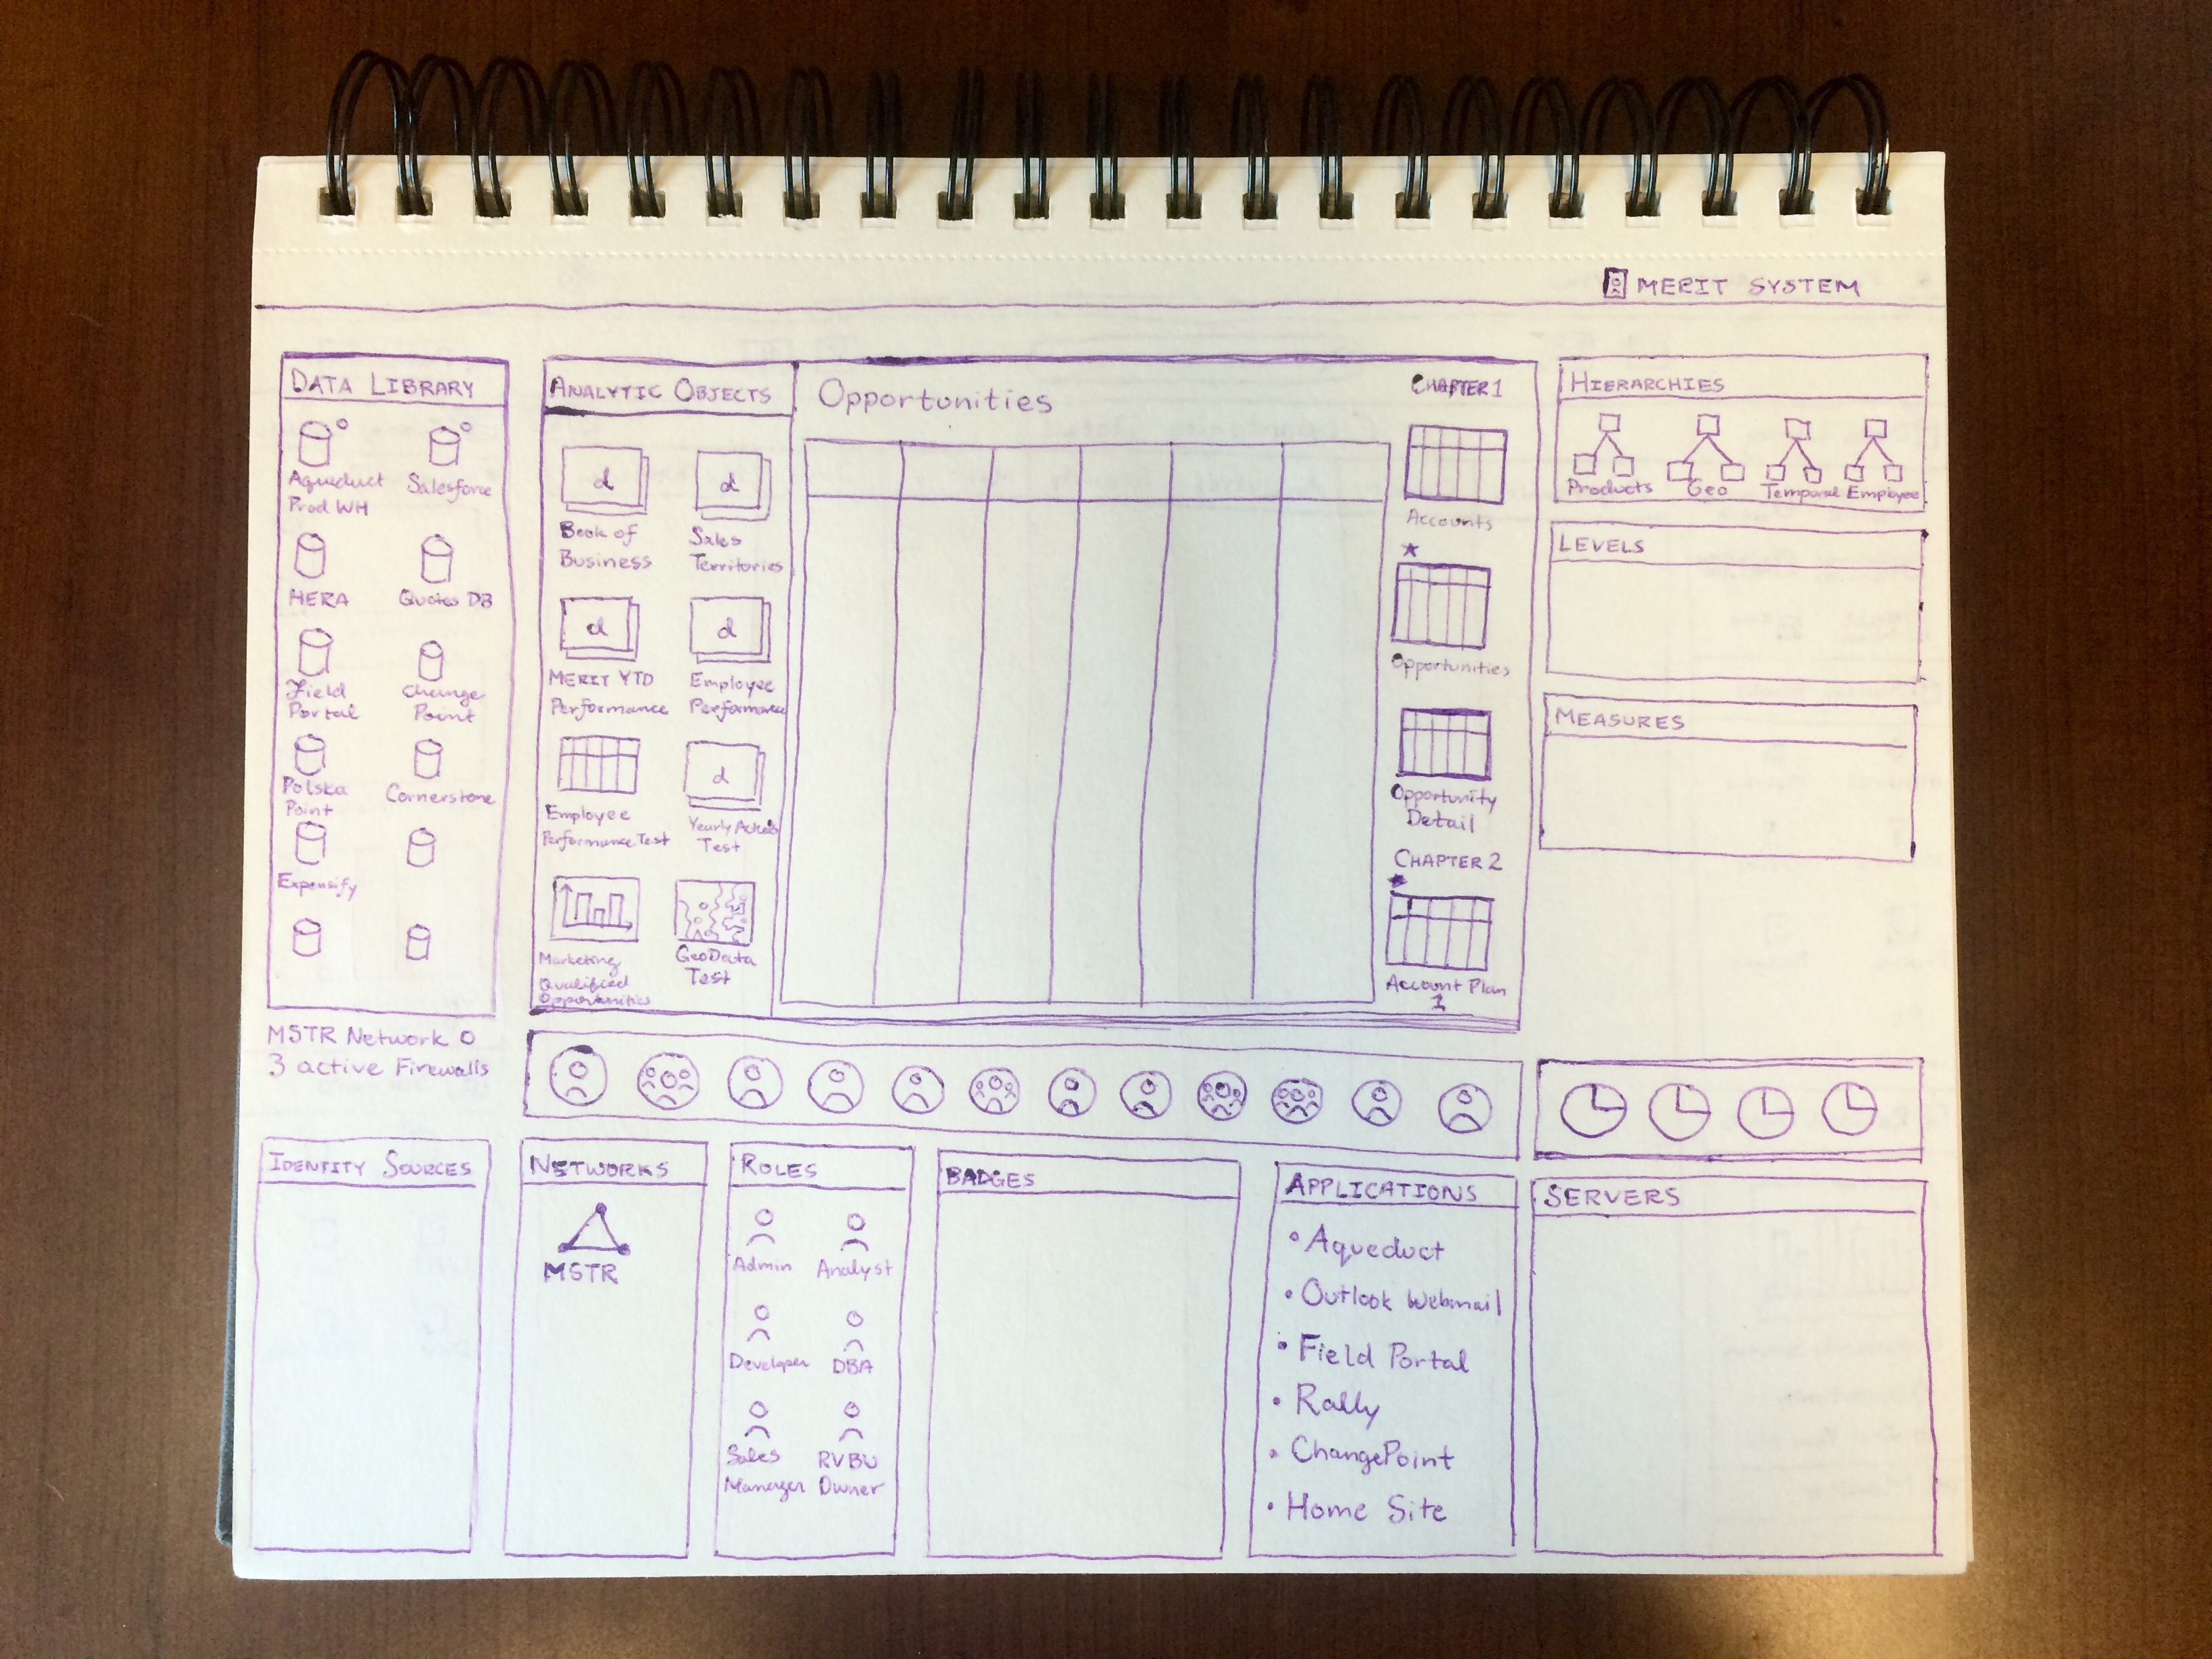 MERIT SYSTEM
DATA LIBRARY
Aqueduct
Prod WH
Salesforce
HERA
Quotes DB
Field
Portal
Change
Point
Polska
Point
Cornerstone
Expensify
MSTR Network
3 active Firewalls
ANALYTIC OBJECTS
d
Book of
Business
d
Sales
Territories
d
MERIT YTD
Performance
d
Employee
Performance
Employee
Performance Test
d
Yearly
Test
Marketing
Qualified
Opportunities
GeoData
Test
Opportunities
CHAPTER 1
Accounts
Opportunities
Opportunity
Detail
CHAPTER 2
Account Plan
1
HIERARCHIES
Products
Geo
Temporal
Employee
LEVELS
MEASURES
IDENTITY SOURCES
NETWORKS
MSTR
ROLES
Admin
Analyst
Developer
DBA
Sales
Manager
RVBU
Owner
BADGES
APPLICATIONS
• Aqueduct
• Outlook Webmail
• Field Portal
• Rally
• ChangePoint
• Home Site
SERVERS